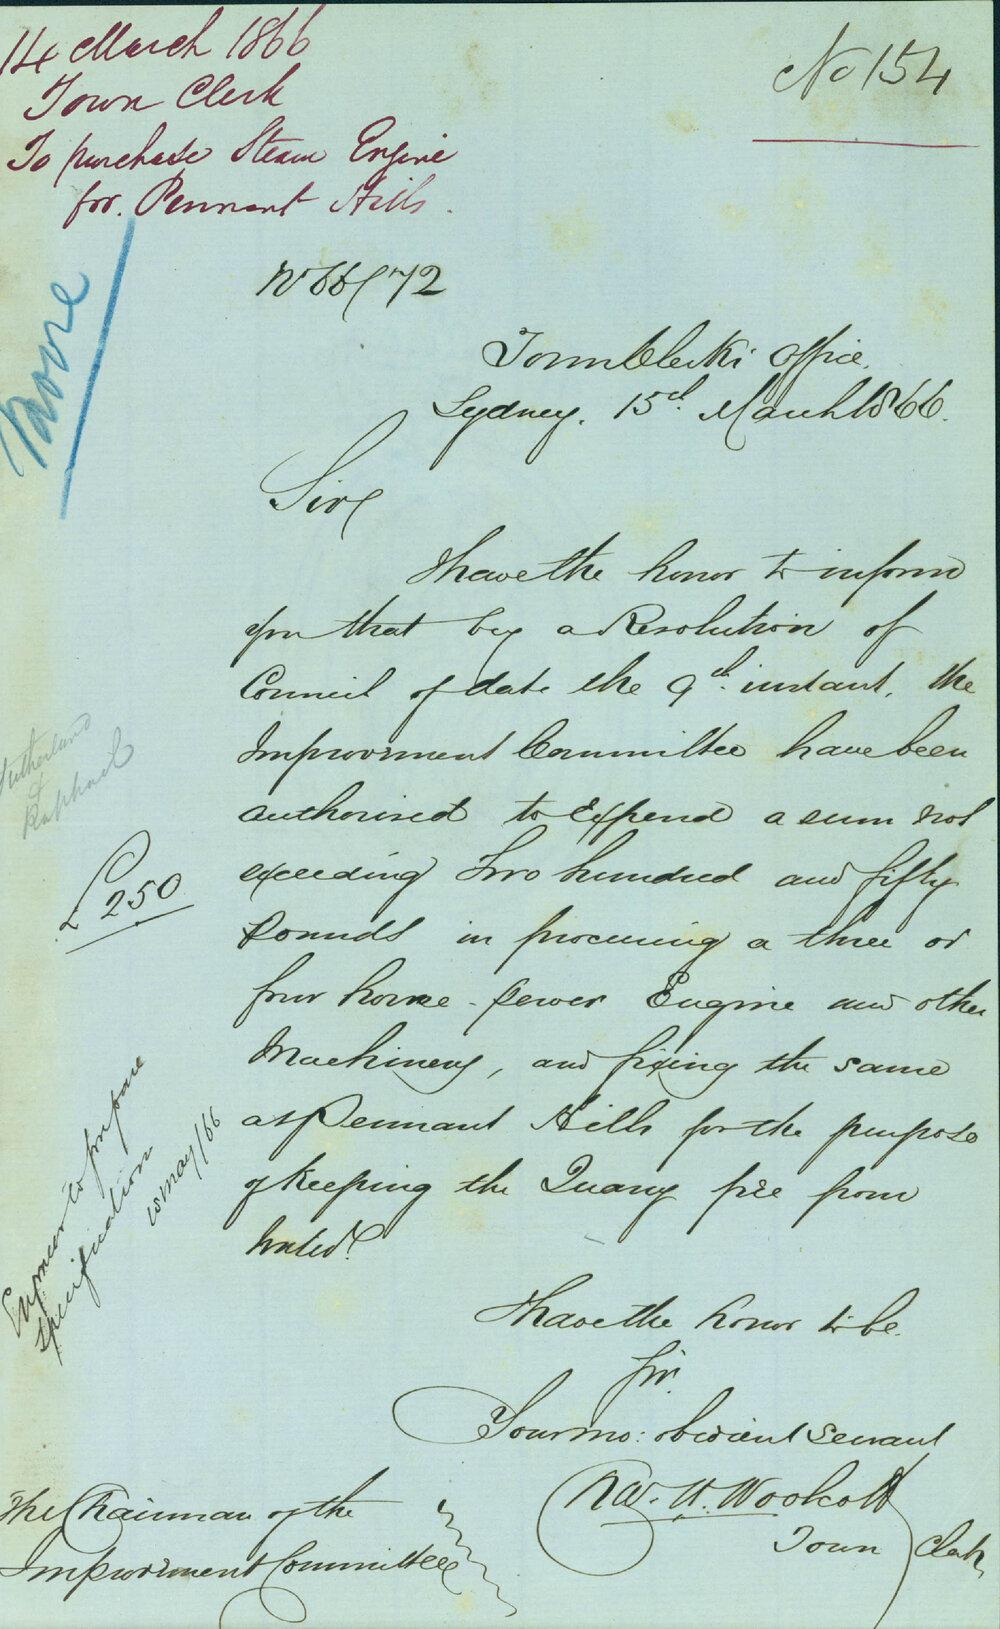 14 March 1866
Town Clerk
To purchase Steam Engine
for Pennant Hills.
No 154
No 66/72
Town Clerk's Office,
Sydney. 15th March 1866.
Sir
I have the honor to inform
you that by a Resolution of
Council of date the 9th instant, the
Improvement Committee have been
authorised to expend a sum not
exceeding Two hundred and fifty
Pounds in procuring a three or
four horse-power Engine and other
Machinery, and fixing the same
at Pennant Hills for the purpose
of keeping the Quarry free from
water.
Sutherland
&
Raphael
£250
to prepare
specification
10 May/66
I have the honor to be.
Sir.
Your mo: obedient servant
W. Woolcott
Town Clerk
The Chairman of the
Improvement Committee